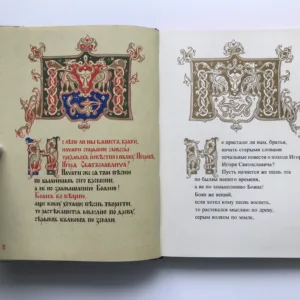 Не лѣпо ли ны бяшетъ, братие,
начяти старыми словесы
трудныхъ повѣстий о пълку Игоревѣ,
Игоря Святъславлича?
Начати же ся тъй пѣсни
по былинамь сего времени,
а не по замышлению Бояню!
Боянъ бо вѣщий,
аще кому хотяше пѣснь творити,
то растѣкашется мыслию по древу,
сѣрымъ вълкомъ по земли,
Не пристало ли нам, братья,
начать старыми словами
печальные повести о походе Игоревом,
Игоря Святославича?
Пусть начнется же песнь эта
по былям нашего времени,
а не по замышлению Бояна!
Боян же вещий,
если хотел кому песнь воспеть,
то растекался мыслью по древу,
серым волком по земле,